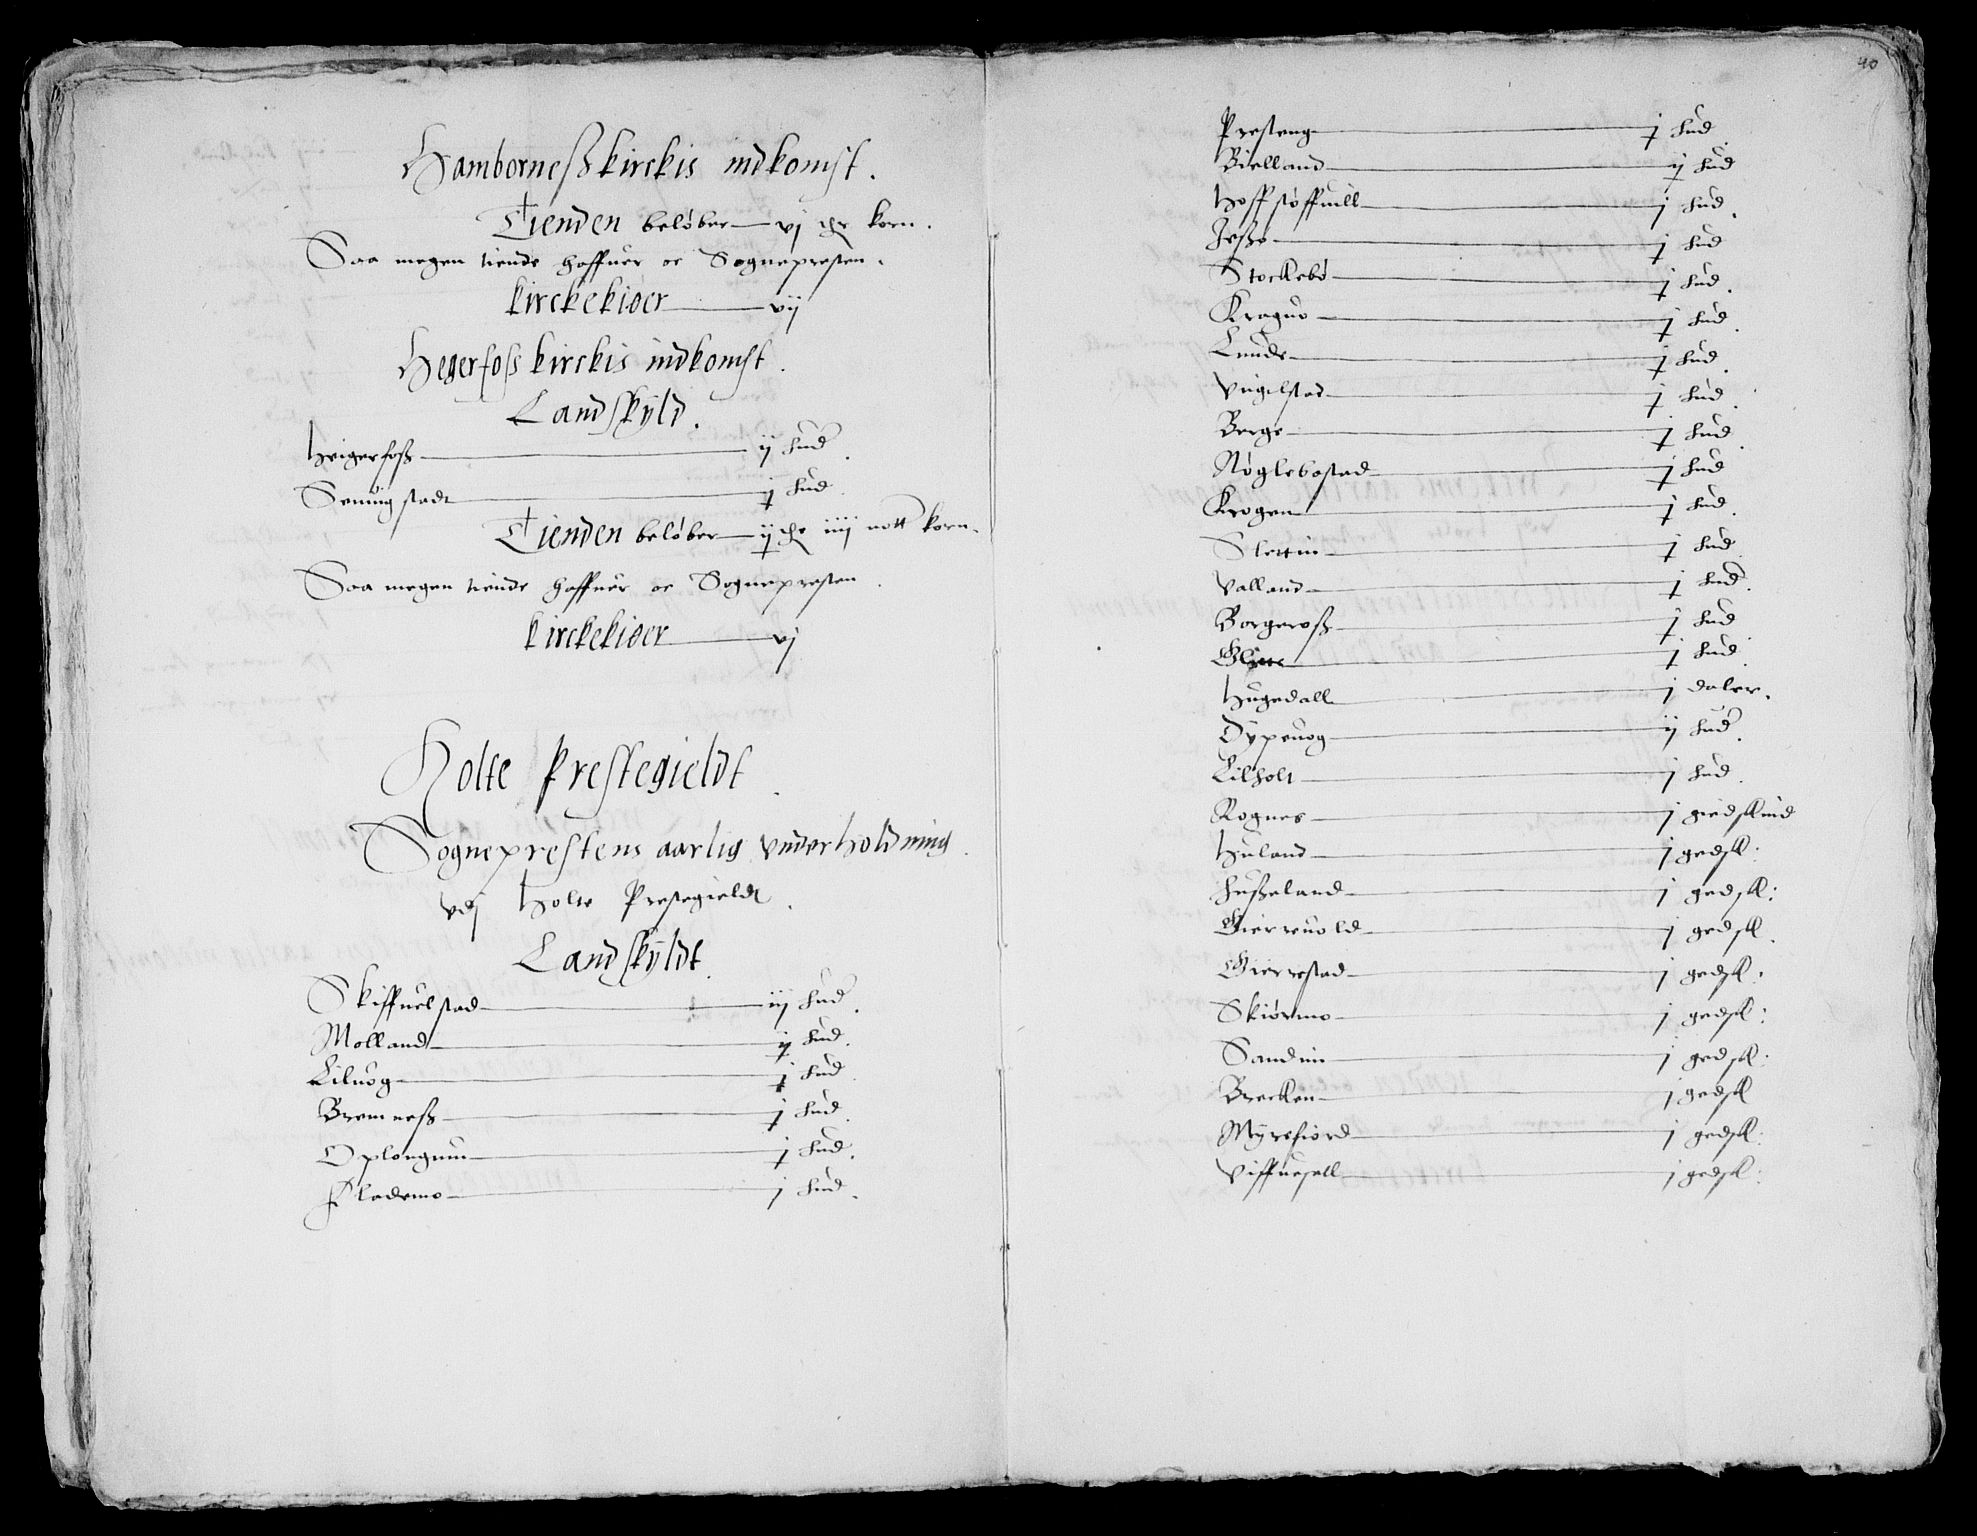 Hamborneß kirckis indkomst.
Tienden beløber vj korn.
Saa megen tiende haffuer oc Sognepresten.
kirckekiøer vij
Hegerfoß kirckis indkomst.
Landskyld.
Heigerfoß ij hud.
Senningstadt j hud.
Tienden beløber ij iiij nott korn.
Saa megen tiende haffuer oc Sognepresten.
kirckekiøer vj
Holte Prestegieldt.
Sogneprestens aarlig vnderholdning.
vdj Holte Prestegieldt.
Landskyldt.
Skiffuelstad iij hud.
Molland ij hud.
Liluog j hud.
Bremneß j hud.
Oplongum j hud.
Flademo j hud.
40
Presteng j hud.
Bielland ij hud
Hoffstøffuill j hud.
j hud
Stockebø j hud.
Kraguo j hud.
Lunde j hud.
Vigelstad j hud.
Berge j hud.
Nøglebostad j hud
Krogen j hud.
Slettin j hud.
Valland j hud.
Borgeroß j hud
j hud.
Hugedall j daler.
Dypeuog ij hud.
Lilholt j hud.
Rognes j giedskind
Huland j gedsk:
Hußeland j gedsk:
Gierreuold j gedsk.
Gierrestad j gedsk:
Skiørmo j gedsk:
Sandnin j gedsk:
Brecken j gedsk
Myrefiord j gedsk:
Viffuesall j gedsk: